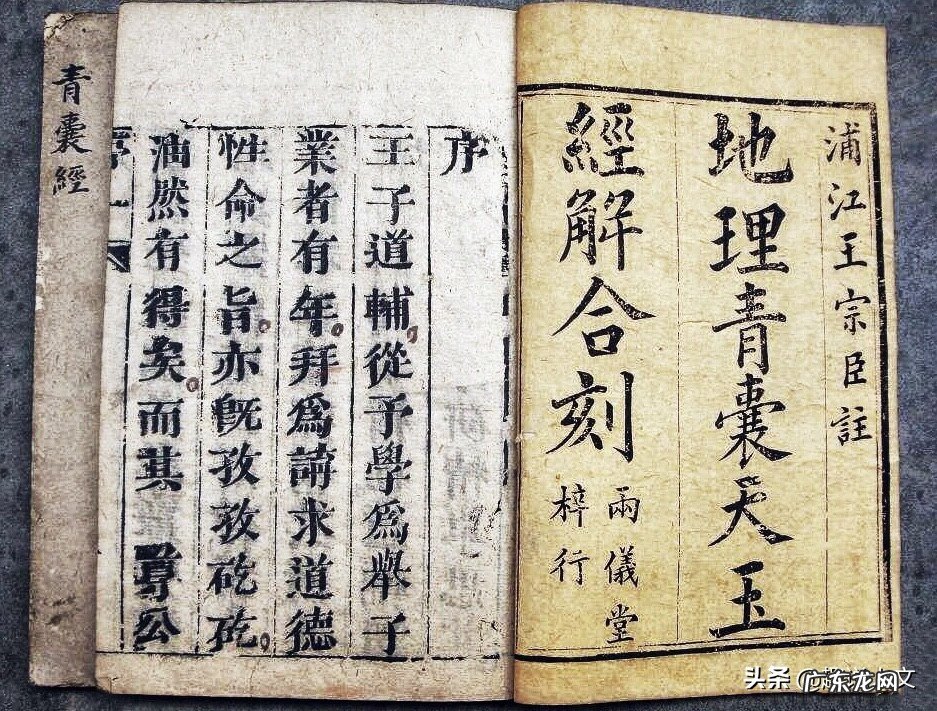 浦江王宗臣註
地理青囊天玉
經解合刻
兩儀堂
梓行
序
王子道輔從予學爲舉子
業者有年幷爲講求道德
性命之旨亦旣孜孜矻矻
油然有得矣而其尊公
序一
青囊經
头条 广东龙网文